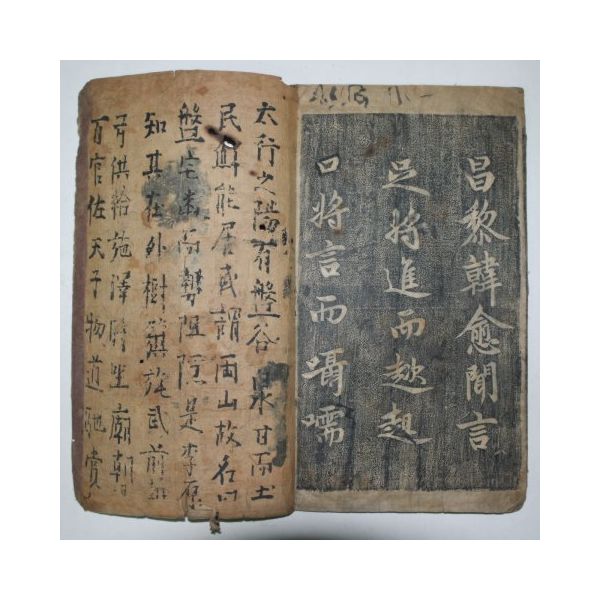 昌黎韓愈聞言
足將進而趑趄
口將言而囁嚅
太行之陽有盤谷泉甘而土
民鮮能居或謂兩山故名曰
盤宅而勢阻隱是李愿
知其在外樹旗旄武前
供給施澤時坐廟朝
百官佐天子物道馳賞